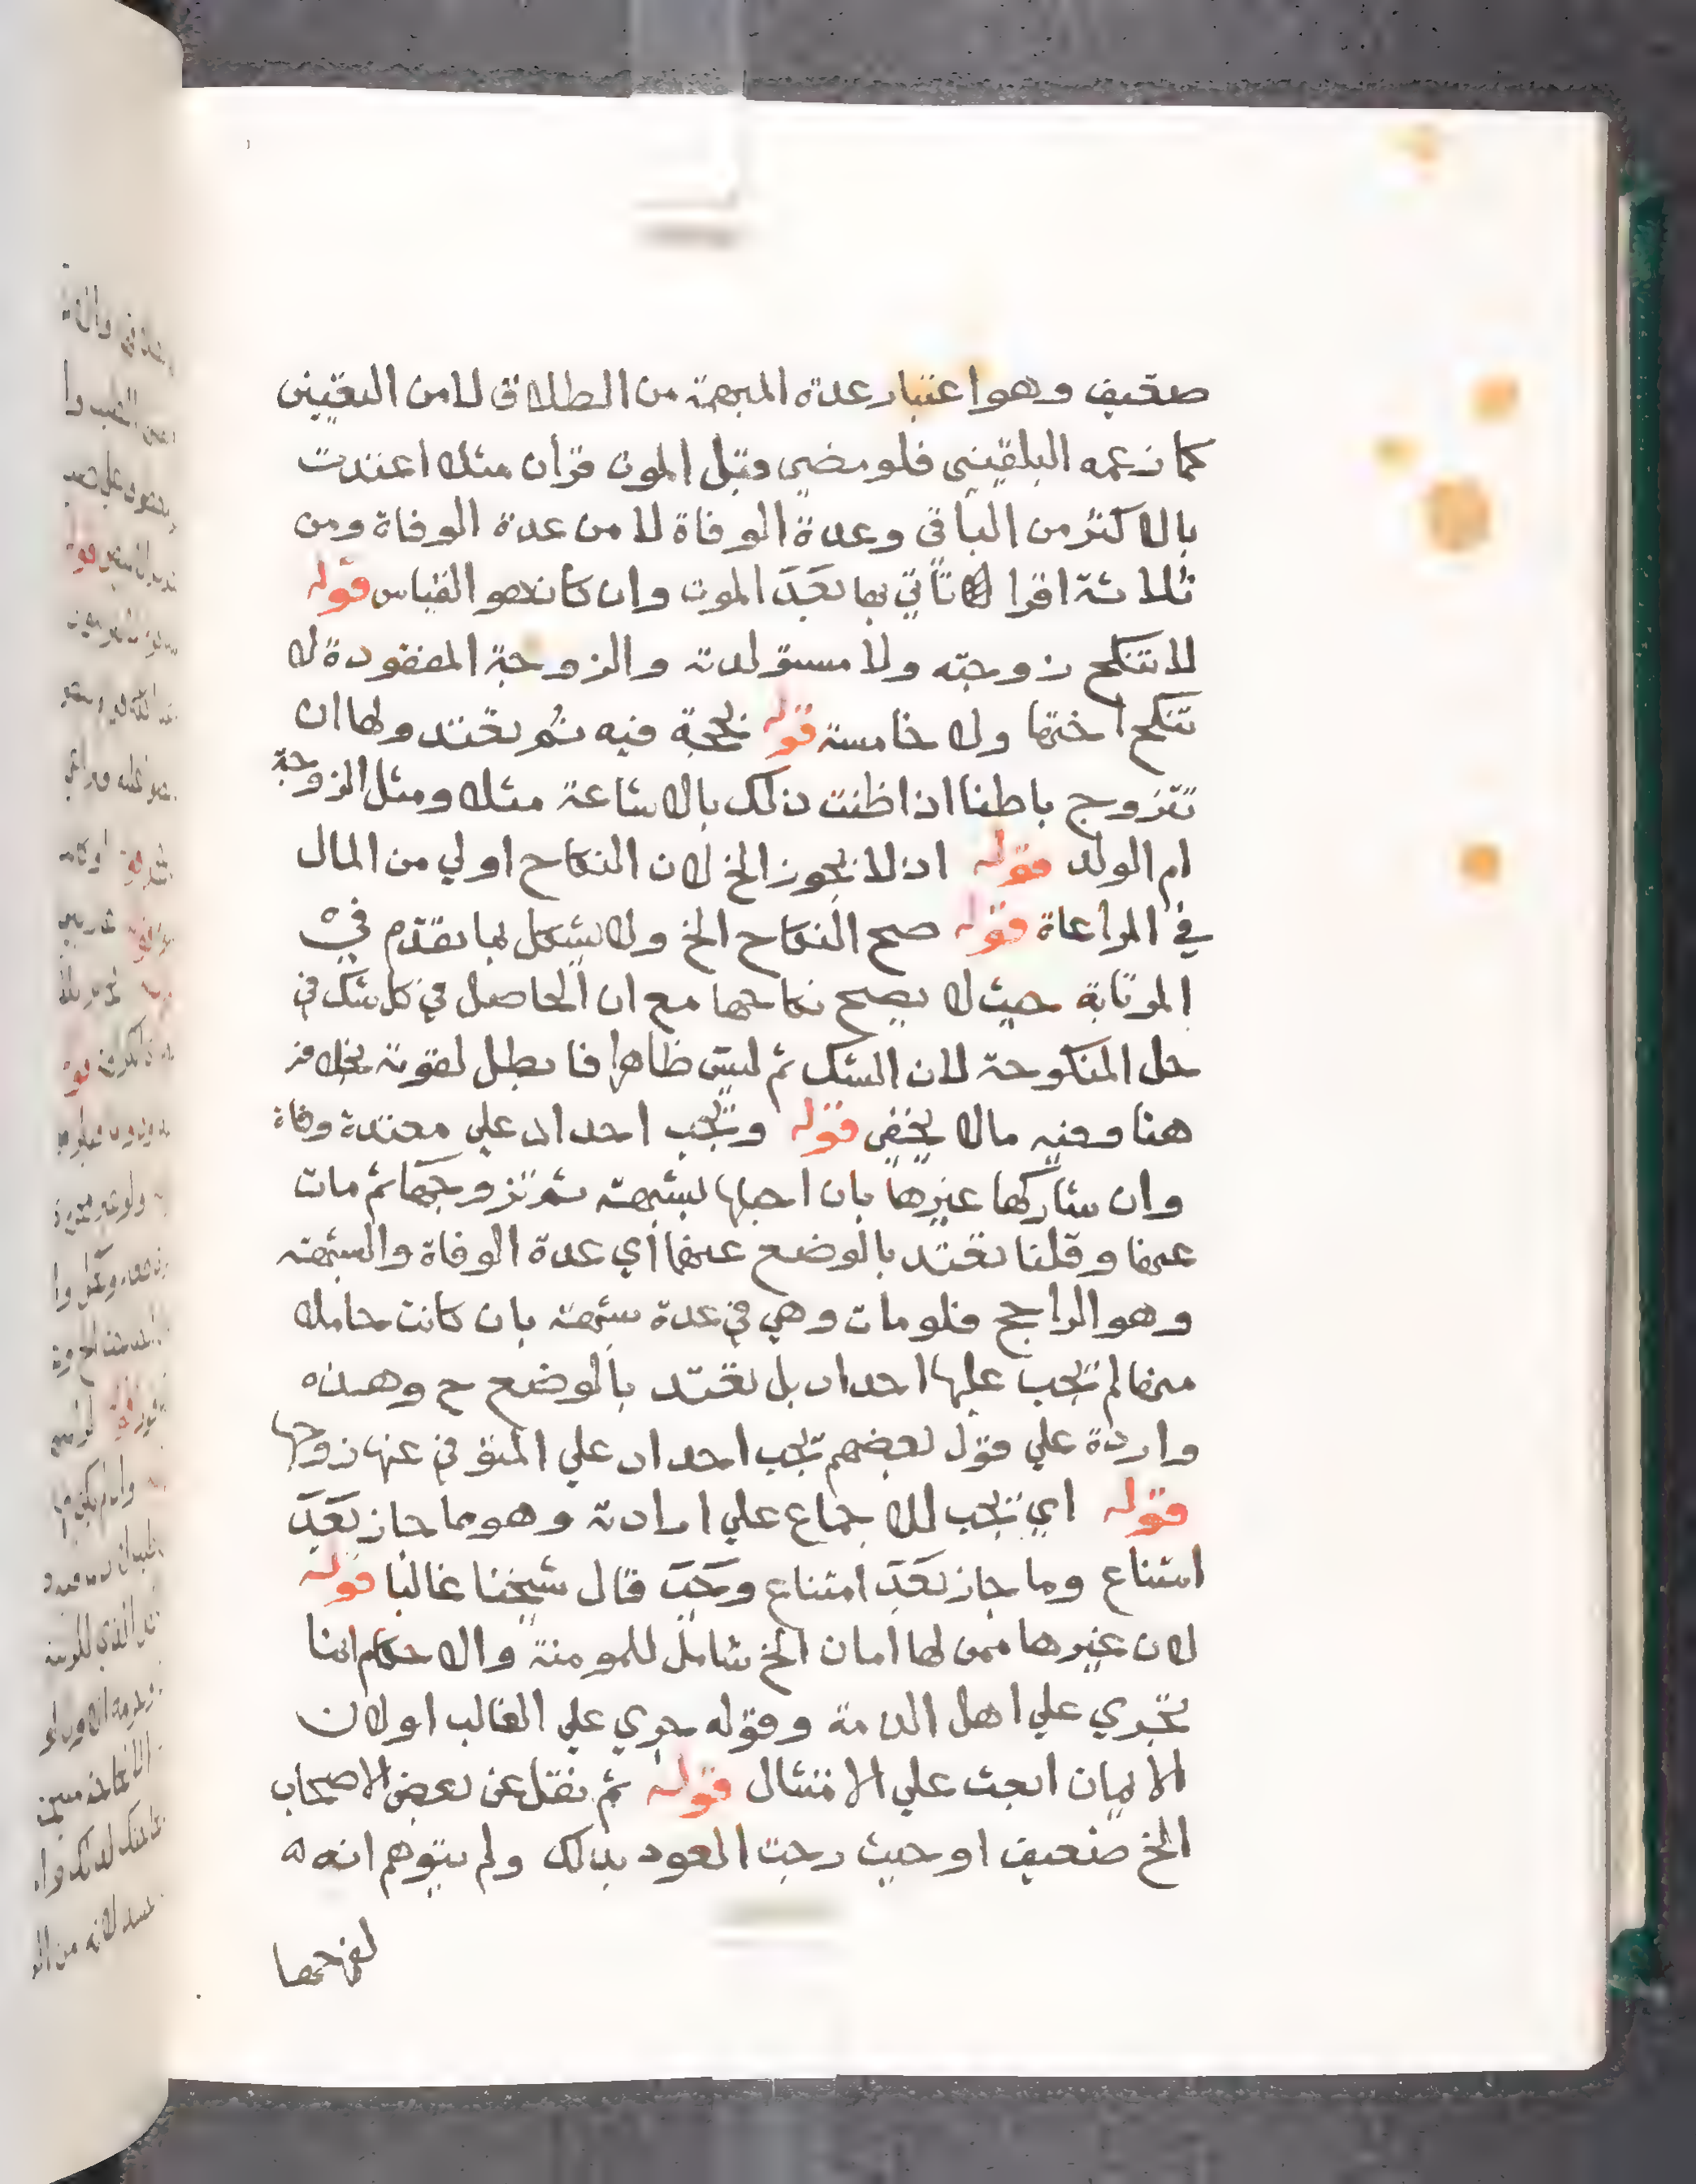 ضعيف وهو اعتبار عدة المبهمة من الطلاق لا من التعيين
كما زعمه البلقيني فلو مضي قبل الموت قرآن مثلا اعتدت
بالاكثر من الباقي وعدة الوفاة لا من عدة الوفاة ومن
ثلاثة اقرا تأتي بها بعد الموت وان كان هو القياس قوله
لا تنكح زوجته ولا مستولدته والزوجة المفقودة لا
تنكح اختها ولا خامسة قوله بحجة فيه ثم تعتد ولها ان
تتزوج باطنا اذا ظنت ذلك بالاشاعة مثلا ومثل الزوجة
ام الولد قوله اذ لا يجوز الخ لان النكاح اولي من المال
في المراعاة قوله صح النكاح الخ ولا يشكل بما تقدم في
المرتابة حيث لا يصح نكاحها مع ان الحاصل في كل شك في
حل المنكوحة لان الشك ثم لسبق ظاهرا فابطل لقوته بخلافه
هنا وفيه ما لا يخفي قوله وتجب احداد علي معتدة وفاة
وان شاركها غيرها بان احبلها بشبهة ثم تزوجها ثم مات
عنها وقلنا تعتد بالوضع عنهما اي عدة الوفاة والشبهة
وهو الراجح فلو مات وهي في عدة شبهة بان كانت حاملا
منها لم تجب عليها احداد بل تعتد بالوضع ح وهذه
واردة علي قول بعضهم تجب احداد علي المتوفي عنها زوجها
قوله اي تجب للاجماع علي ارادته وهو ما جاز بعد
امتناع وما جاز بعد امتناع وجب قال شيخنا غالبا قوله
لان غيرها ممن لها امان الخ شامل للمومنة والاحكام انما
تجري علي اهل الذمة وقوله جري علي الغالب او لان
الايمان ابعث علي الامتثال قوله ثم نقل عن بعض الاصحاب
الخ ضعيف او حيث رجت العود بذلك ولم يتوهم انه